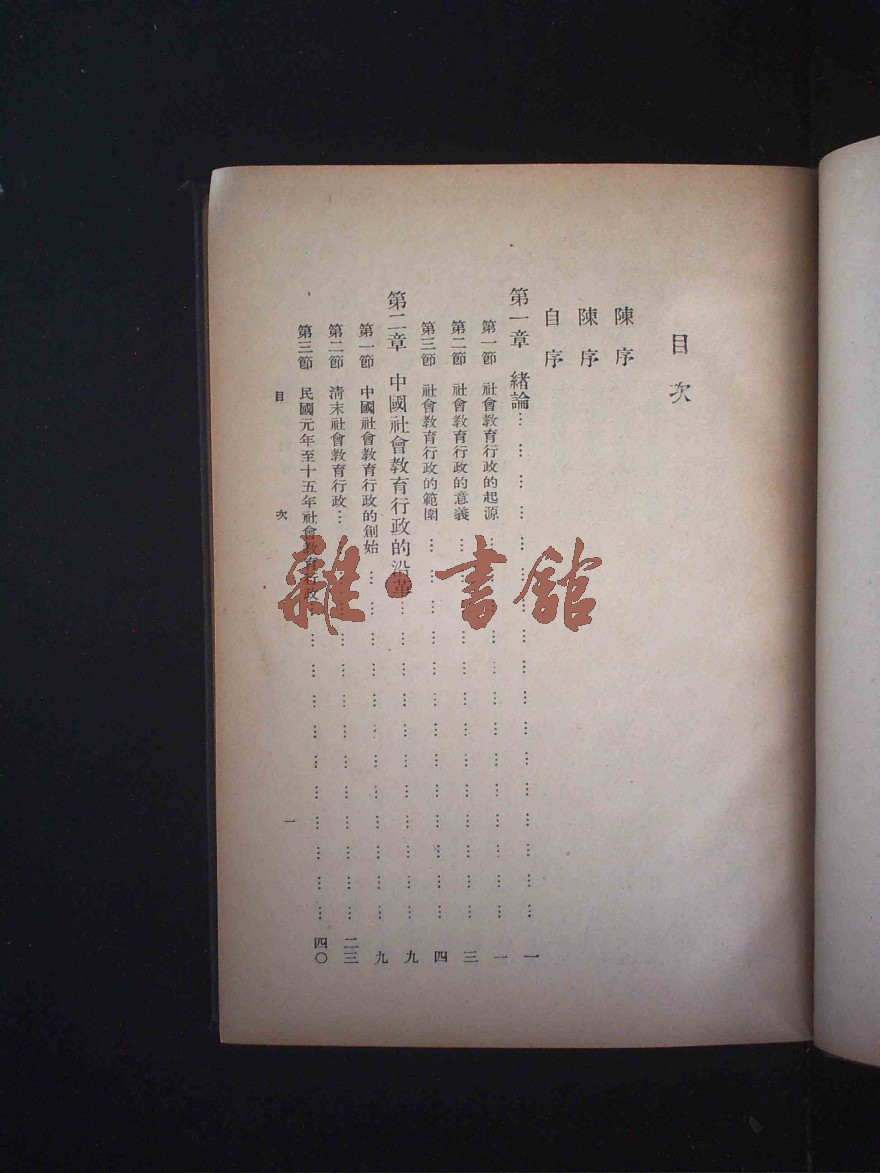 目次
陳序
陳序
自序
第一章 緒論………………………………………一
第一節 社會教育行政的起源………………………………一
第二節 社會教育行政的意義………………………………三
第三節 社會教育行政的範圍………………………………四
第二章 中國社會教育行政的沿革………………………………九
第一節 中國社會教育行政的創始………………………………九
第二節 清末社會教育行政………………………………二三
第三節 民國元年至十五年社會教育行政………………………………四〇
目次
一
雜·書館